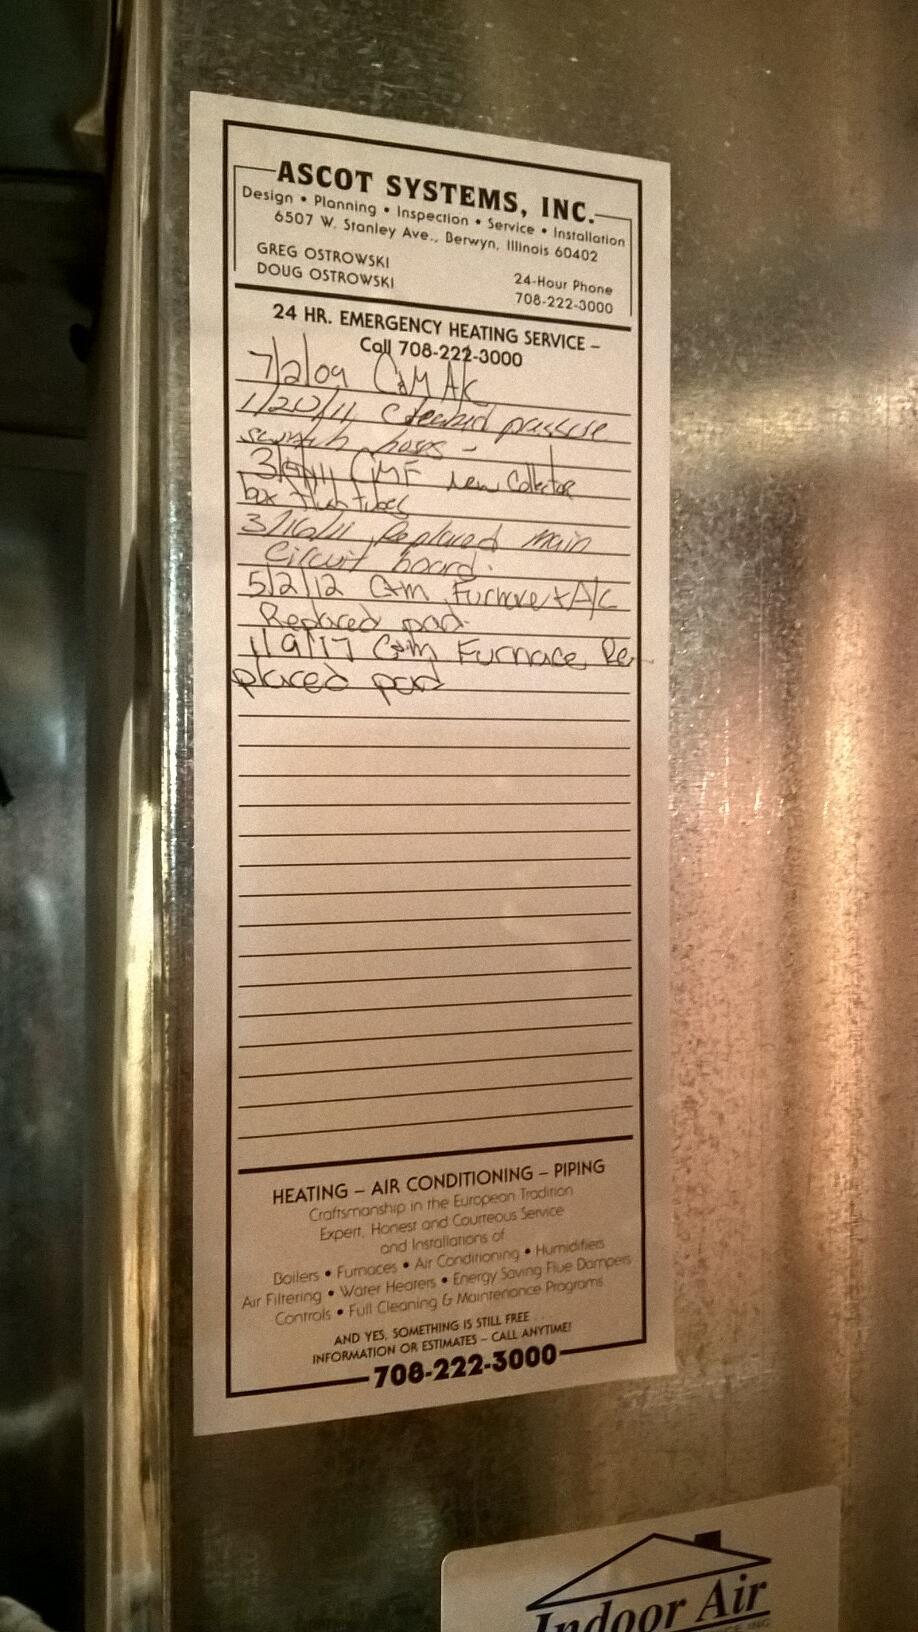 ASCOT SYSTEMS, INC.
Design • Planning • Inspection • Service • Installation
6507 W. Stanley Ave., Berwyn, Illinois 60402
GREG OSTROWSKI
DOUG OSTROWSKI
24-Hour Phone
708-222-3000
24 HR. EMERGENCY HEATING SERVICE –
Call 708-222-3000
7/2/09 C&M A/C
1/20/11 Checked pressure
switch hoses -
CMF new Collector
box flush tubes
3/16/11 Replaced main
circuit board.
5/2/12 C+m Furnace + A/C
Replaced pad.
1/9/17 C+m Furnace Re
placed pad
HEATING – AIR CONDITIONING – PIPING
Craftsmanship in the European Tradition
Expert, Honest and Courteous Service
and Installations of
Boilers • Furnaces • Air Conditioning • Humidifiers
Air Filtering • Water Heaters • Energy Saving Flue Dampers
Controls • Full Cleaning & Maintenance Programs
AND YES, SOMETHING IS STILL FREE . . .
INFORMATION OR ESTIMATES – CALL ANYTIME!
708-222-3000
Indoor Air